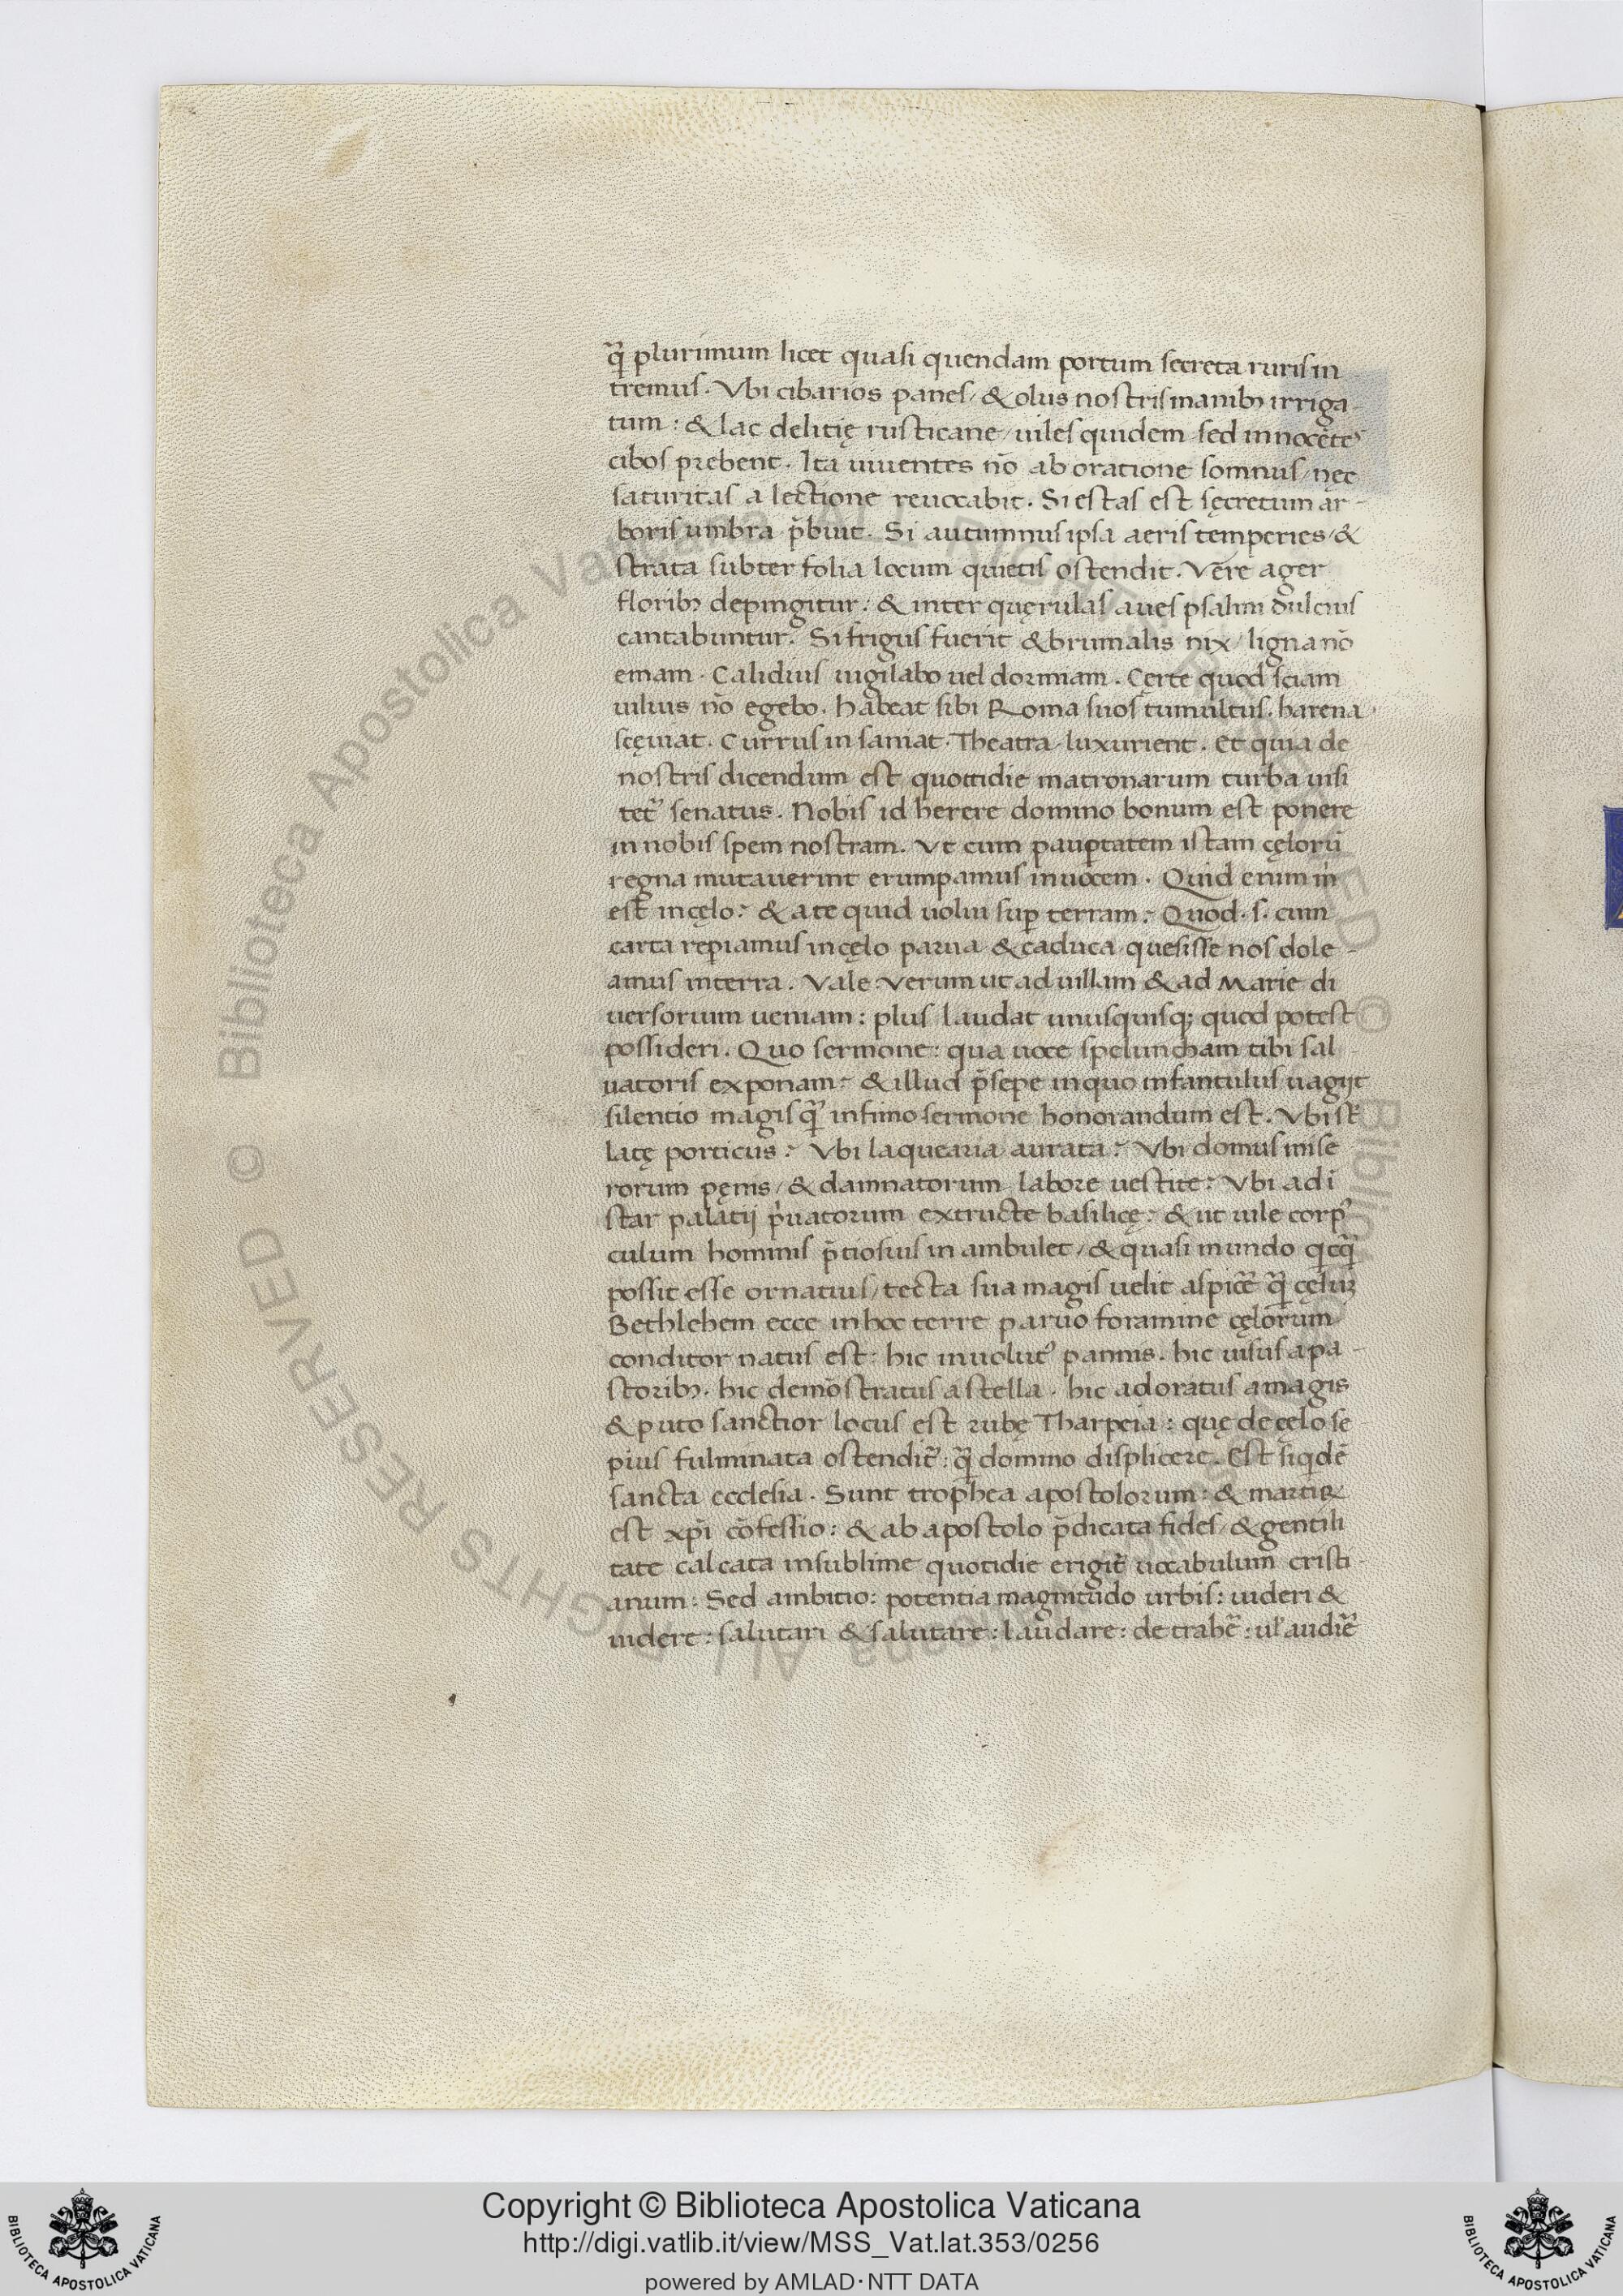 q̄ plurimum licet quasi quendam portum secreta ruris in
tremus. Vbi cibarios panes / & olus nostris manibꝫ irriga-
tum: & lac delitię rusticane / uiles quidem sed innocētes
cibos prebent. Ita uiuentes nō ab oratione somnus / nęc
saturitas a lectione reuocabit. Si estas est sęcretum ar-
boris umbra p̄biut. Si autumnus ipsa aeris temperies / &
strata subter folia locum quietis ostendit. Vēre ager
floribꝫ depingitur: & inter quęrulas aues psalmi dulcius
cantabuntur. Si frigus fuerit & brumalis nix / ligna nō
emam. Calidius uigilabo uel dormiam. Cęrte quod sciam
uilius nō egebo. habeat sibi Roma suos tumultus. harena
sęuiat. Currus insaniat. Theatra luxurient. Et quia de
nostris dicendum est quottidie matronarum turba uisi
tet᷑ senatus. Nobis id herere domino bonum est ponere
in nobis spem nostram. Vt cum pauꝑtatem istam cęlorū
regna mutauerint erumpamus in uocem. Quid enim m̓
est in cęlo? & a te quid uolui suꝑ terram? Quod .s. cum
carta reperiamus in cęlo parua & caduca quesisse nos dole-
amus in terra. Vale. Verum ut ad uillam & ad Marie di
uersorium ueniam: plus laudat unusquisqꝫ quod potest
possideri. Quo sermone: qua uoce speluncham tibi sal-
uatoris exponam? & illud p̄sepe in quo infantulus uagijt
silentio magis q̄ infimo sermone honorandum est. Vbi st̄
latę porticus? Vbi laquearia aurata? Vbi domus mise
rorum pęnis / & damnatorum labore uestite? Vbi ad i
star palatij p̓uatorum extructe basilicę? & ut uile corp᷒
culum hominis p̄tiosius inambulet / & quasi mundo q̓cq̄
possit esse ornatius / tecta sua magis uelit aspicē q̄ cęluꝫ
Bethlehem ecce in hoc terre paruo foramine cęlorum
conditor natus est: hic inuolut᷒ pannis. hic uisus a pa-
storibꝫ. hic demōstratus a stella. hic adoratus a magis
& puto sanctior locus est rubę Tharpeia: quę de cęlo se
pius fulminata ostendit᷑: q̄ domino displicere. Est siq̓dē
sancta ecclesia. Sunt trophea apostolorum: & martiꝝ
est xp̄i cōfessio: & ab apostolo p̄dicata fides / & gentili
tate calcata in sublime quotidie erigit᷑ uocabulum cristi-
anum: Sed ambitio: potentia magnitudo urbis: uideri &
uidere: salutari & salutare: laudare: detrahē: ul̓ audiē
Copyright © Biblioteca Apostolica Vaticana
http://digi.vatlib.it/view/MSS_Vat.lat.353/0256
powered by AMLAD·NTT DATA